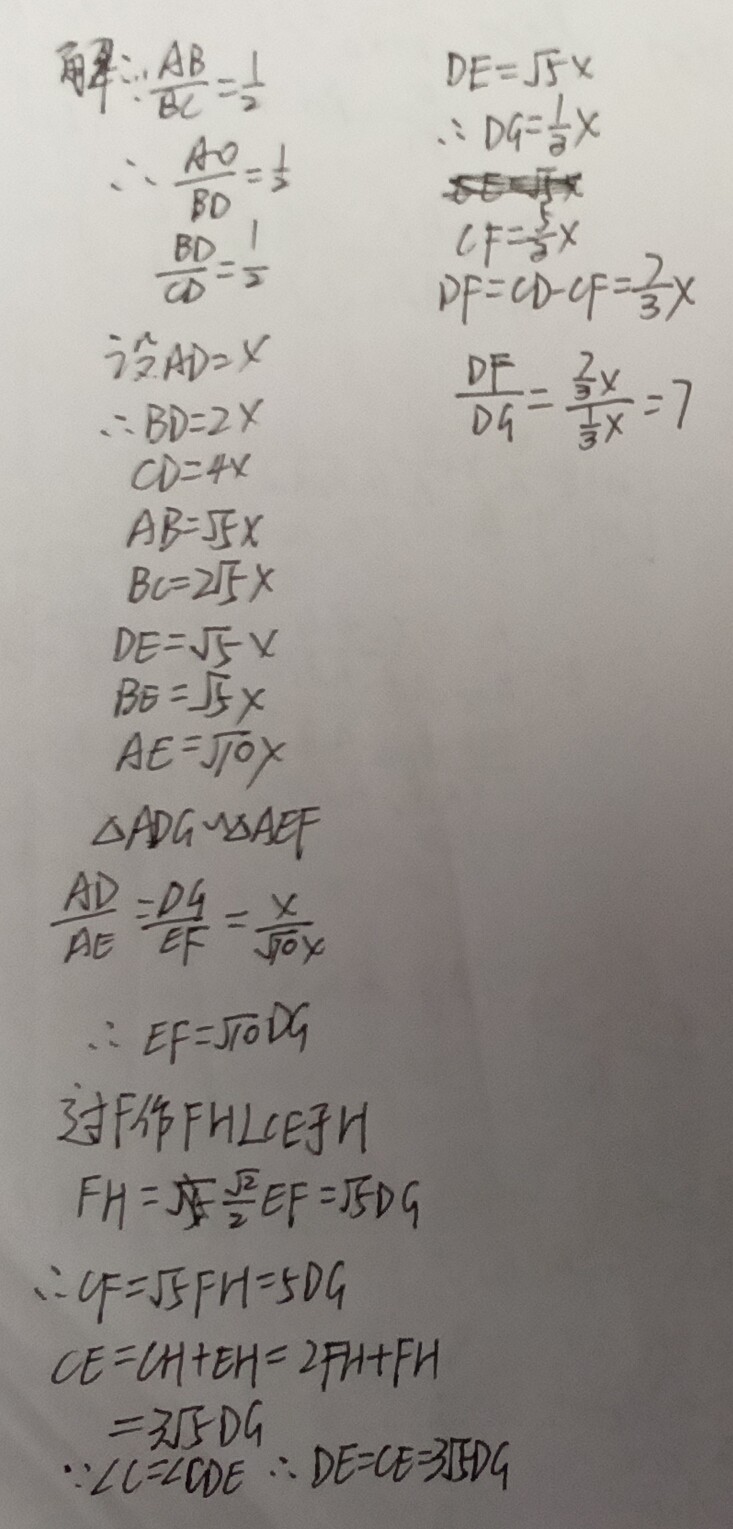 解:∵AB/BC=1/2
∴AO/BD=1/2
BD/CD=1/2
设AD=x
∴BD=2x
CD=4x
AB=√5x
BC=2√5x
DE=√5x
BE=√5x
AE=√10x
△ADG∽△AEF
AD/AE=DG/EF=x/√10x
∴EF=√10DG
过F作FH⊥CE于H
FH=√2/2EF=√5DG
∴CF=√5FH=5DG
CE=CH+EH=2FH+FH
=3√5DG
∵∠C=∠CDE ∴DE=CE=3√5DG
DE=√5x
∴DG=1/3x
CF=5/3x
DF=CD-CF=7/3x
DF/DG=7/3x/1/3x=7